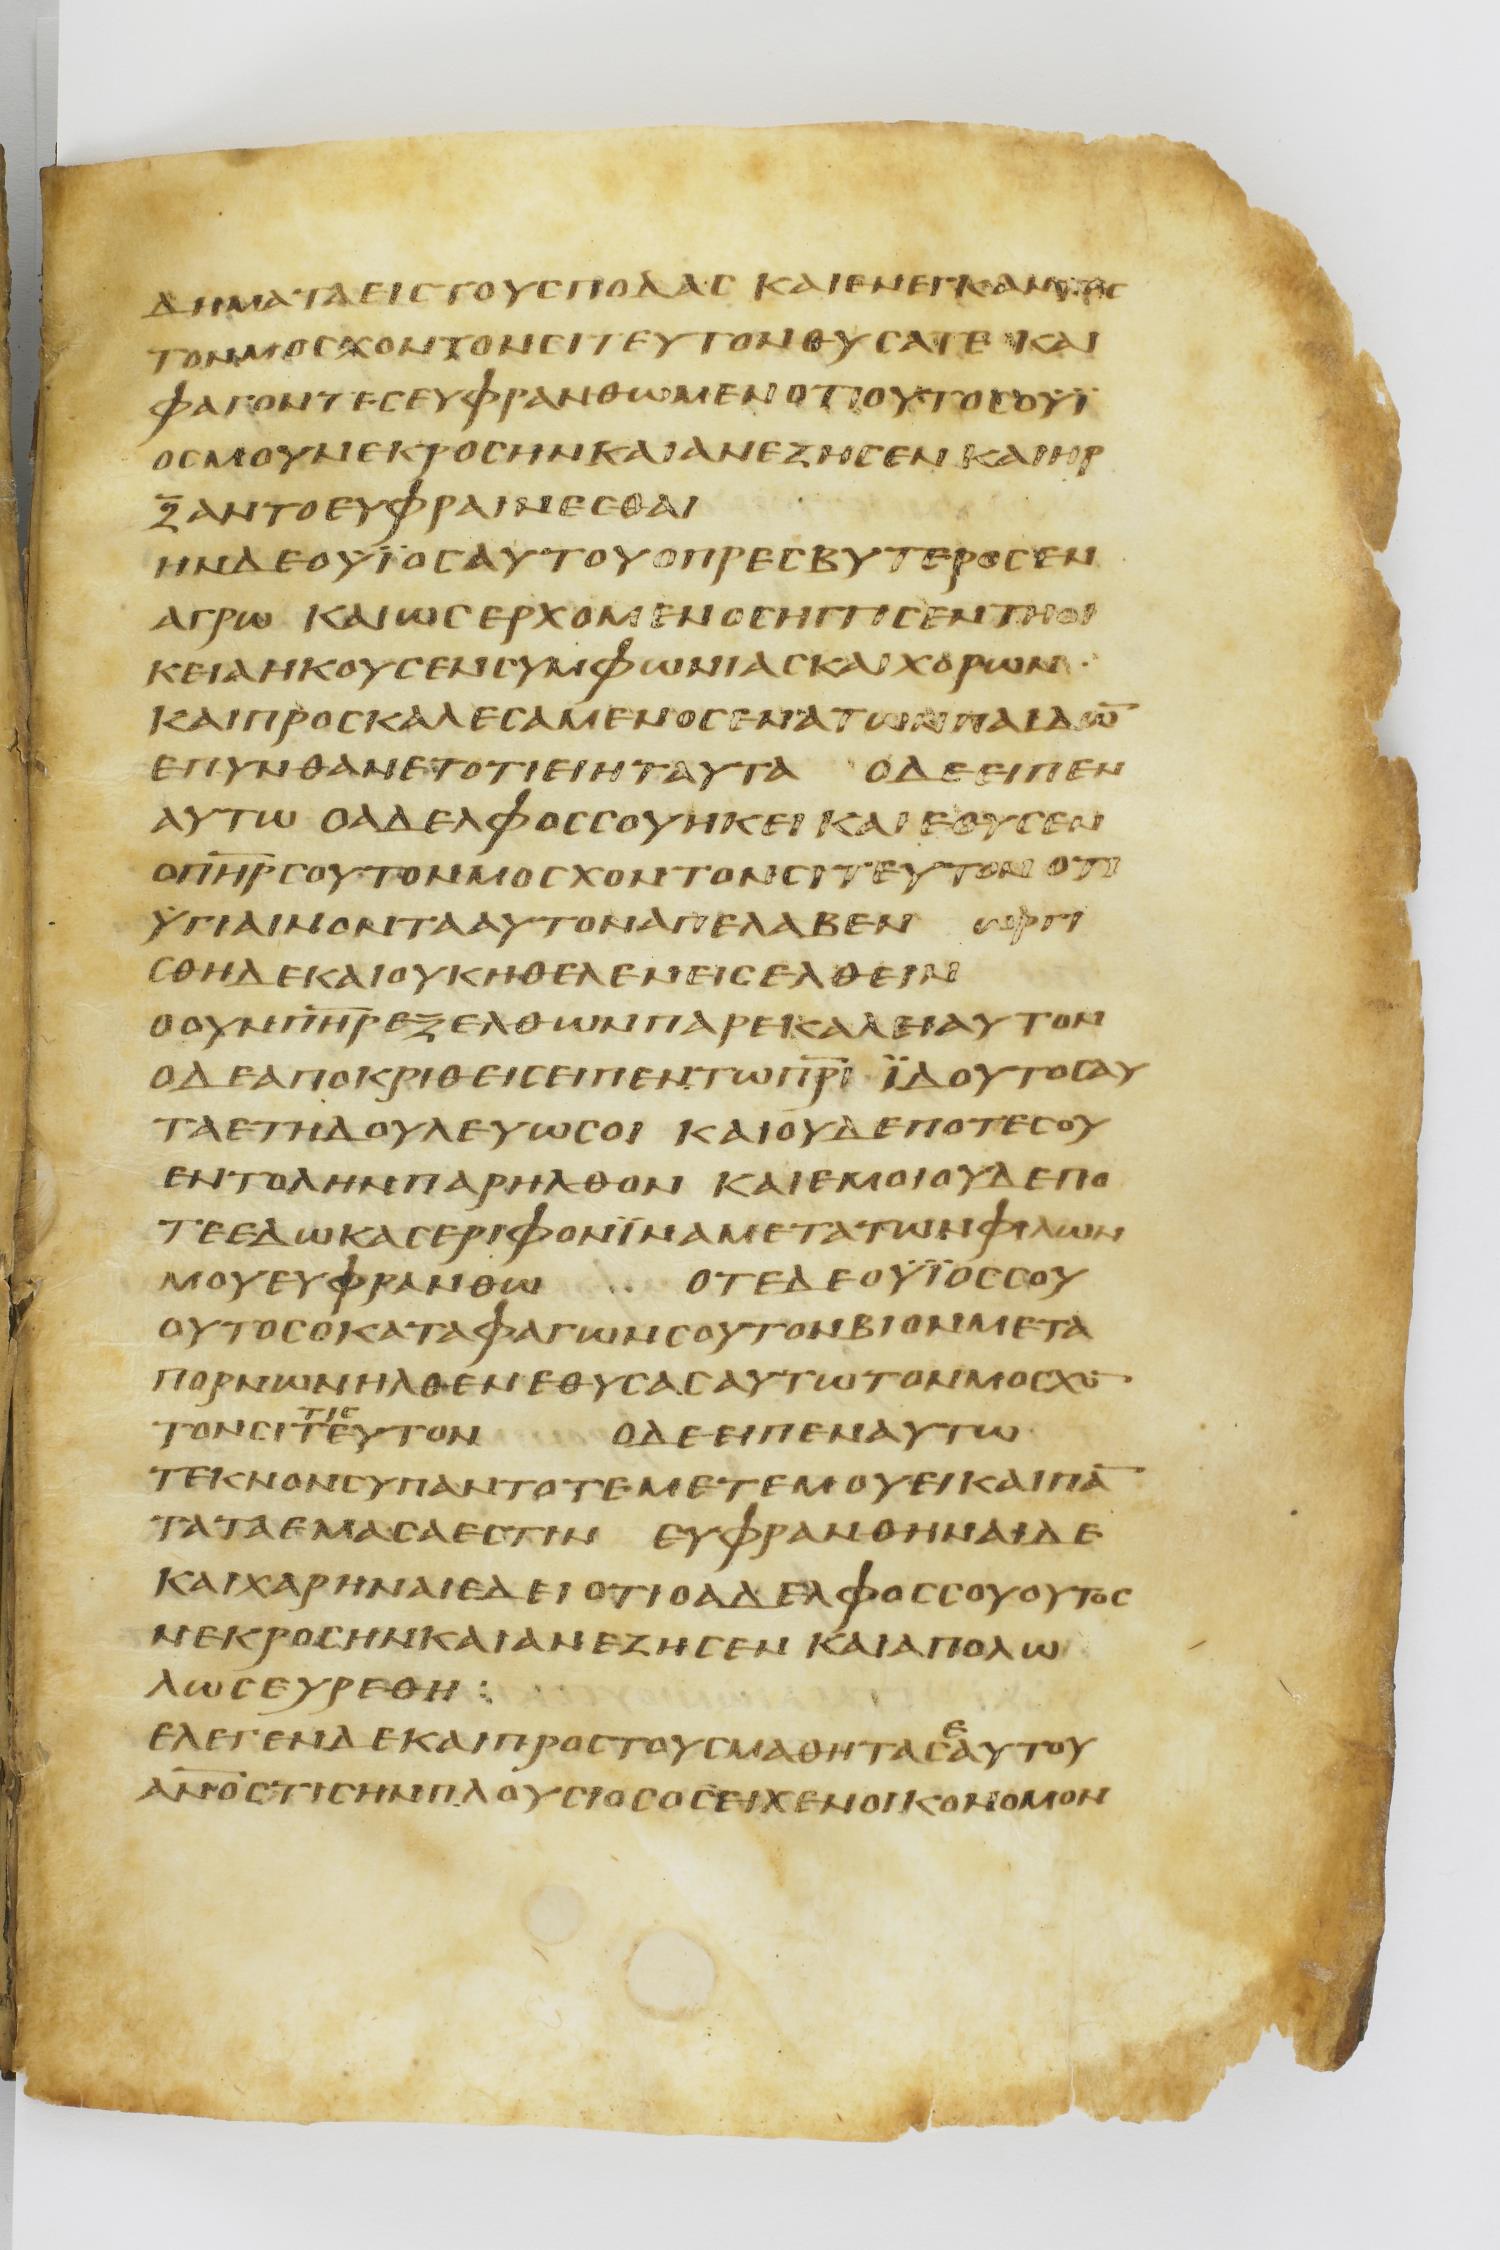 ΔΗΜΑΤΑΕΙΣΤΟΥΣΠΟΔΑΣ ΚΑΙΕΝΕΓΚΑΝΤΕΣ
ΤΟΝΜΟΣΧΟΝΤΟΝΣΙΤΕΥΤΟΝΘΥΣΑΤΕ ΚΑΙ
ΦΑΓΟΝΤΕΣΕΥΦΡΑΝΘΩΜΕΝΟΤΙΟΥΤΟΣΟΥΪ
ΟΣΜΟΥΝΕΚΡΟΣΗΝΚΑΙΑΝΕΖΗΣΕΝ ΚΑΙΗΡ
ΞΑΝΤΟΕΥΦΡΑΙΝΕΣΘΑΙ
ΗΝΔΕΟΥΪΟΣΑΥΤΟΥΟΠΡΕΣΒΥΤΕΡΟΣΕΝ
ΑΓΡΩ ΚΑΙΩΣΕΡΧΟΜΕΝΟΣΗΓΓΙΣΕΝΤΗΟΙ
ΚΕΙΑΗΚΟΥΣΕΝΣΥΜΦΩΝΙΑΣΚΑΙΧΟΡΩΝ·
ΚΑΙΠΡΟΣΚΑΛΕΣΑΜΕΝΟΣΕΝΑΤΩΝΠΑΙΔΩ̅
ΕΠΥΝΘΑΝΕΤΟΤΙΕΙΗΤΑΥΤΑ ΟΔΕΕΙΠΕΝ
ΑΥΤΩ ΟΑΔΕΛΦΟΣΣΟΥΗΚΕΙ ΚΑΙΕΘΥΣΕΝ
ΟΠ̅Η̅Ρ̅ΣΟΥΤΟΝΜΟΣΧΟΝΤΟΝΣΙΤΕΥΤΟΝΟΤΙ
ΫΓΙΑΙΝΟΝΤΑΑΥΤΟΝΑΠΕΛΑΒΕΝ ΩΡΓΙ
ΣΘΗΔΕΚΑΙΟΥΚΗΘΕΛΕΝΕΙΣΕΛΘΕΙΝ
ΟΟΥΝΠ̅Η̅Ρ̅ΕΞΕΛΘΩΝΠΑΡΕΚΑΛΕΙΑΥΤΟΝ
ΟΔΕΑΠΟΚΡΙΘΕΙΣΕΙΠΕΝΤΩΠ̅Ρ̅Ι̅ ΪΔΟΥΤΟΣΑΥ
ΤΑΕΤΗΔΟΥΛΕΥΩΣΟΙ ΚΑΙΟΥΔΕΠΟΤΕΣΟΥ
ΕΝΤΟΛΗΝΠΑΡΗΛΘΟΝ ΚΑΙΕΜΟΙΟΥΔΕΠΟ
ΤΕΕΔΩΚΑΣΕΡΙΦΟΝΪΝΑΜΕΤΑΤΩΝΦΙΛΩΝ
ΜΟΥΕΥΦΡΑΝΘΩ ΟΤΕΔΕΟΥΪΟΣΣΟΥ
ΟΥΤΟΣΟΚΑΤΑΦΑΓΩΝΣΟΥΤΟΝΒΙΟΝΜΕΤΑ
ΠΟΡΝΩΝΗΛΘΕΝΕΘΥΣΑΣΑΥΤΩΤΟΝΜΟΣΧΟ̅
ΤΟΝΣΙΤΕΥΤΟΝ ΟΔΕΕΙΠΕΝΑΥΤΩ
ΤΕΚΝΟΝΣΥΠΑΝΤΟΤΕΜΕΤΕΜΟΥΕΙΚΑΙΠΑ̅
ΤΑΤΑΕΜΑΣΑΕΣΤΙΝ ΕΥΦΡΑΝΘΗΝΑΙΔΕ
ΚΑΙΧΑΡΗΝΑΙΕΔΕΙΟΤΙΟΑΔΕΛΦΟΣΣΟΥΟΥΤΟΣ
ΝΕΚΡΟΣΗΝΚΑΙΑΝΕΖΗΣΕΝ ΚΑΙΑΠΟΛΩ
ΛΩΣΕΥΡΕΘΗ:
ΕΛΕΓΕΝΔΕΚΑΙΠΡΟΣΤΟΥΣΜΑΘΗΤΑΣΑΥΤΟΥ
Α̅Ν̅Ο̅Σ̅ΤΙΣΗΝΠΛΟΥΣΙΟΣΟΣΕΙΧΕΝΟΙΚΟΝΟΜΟΝ